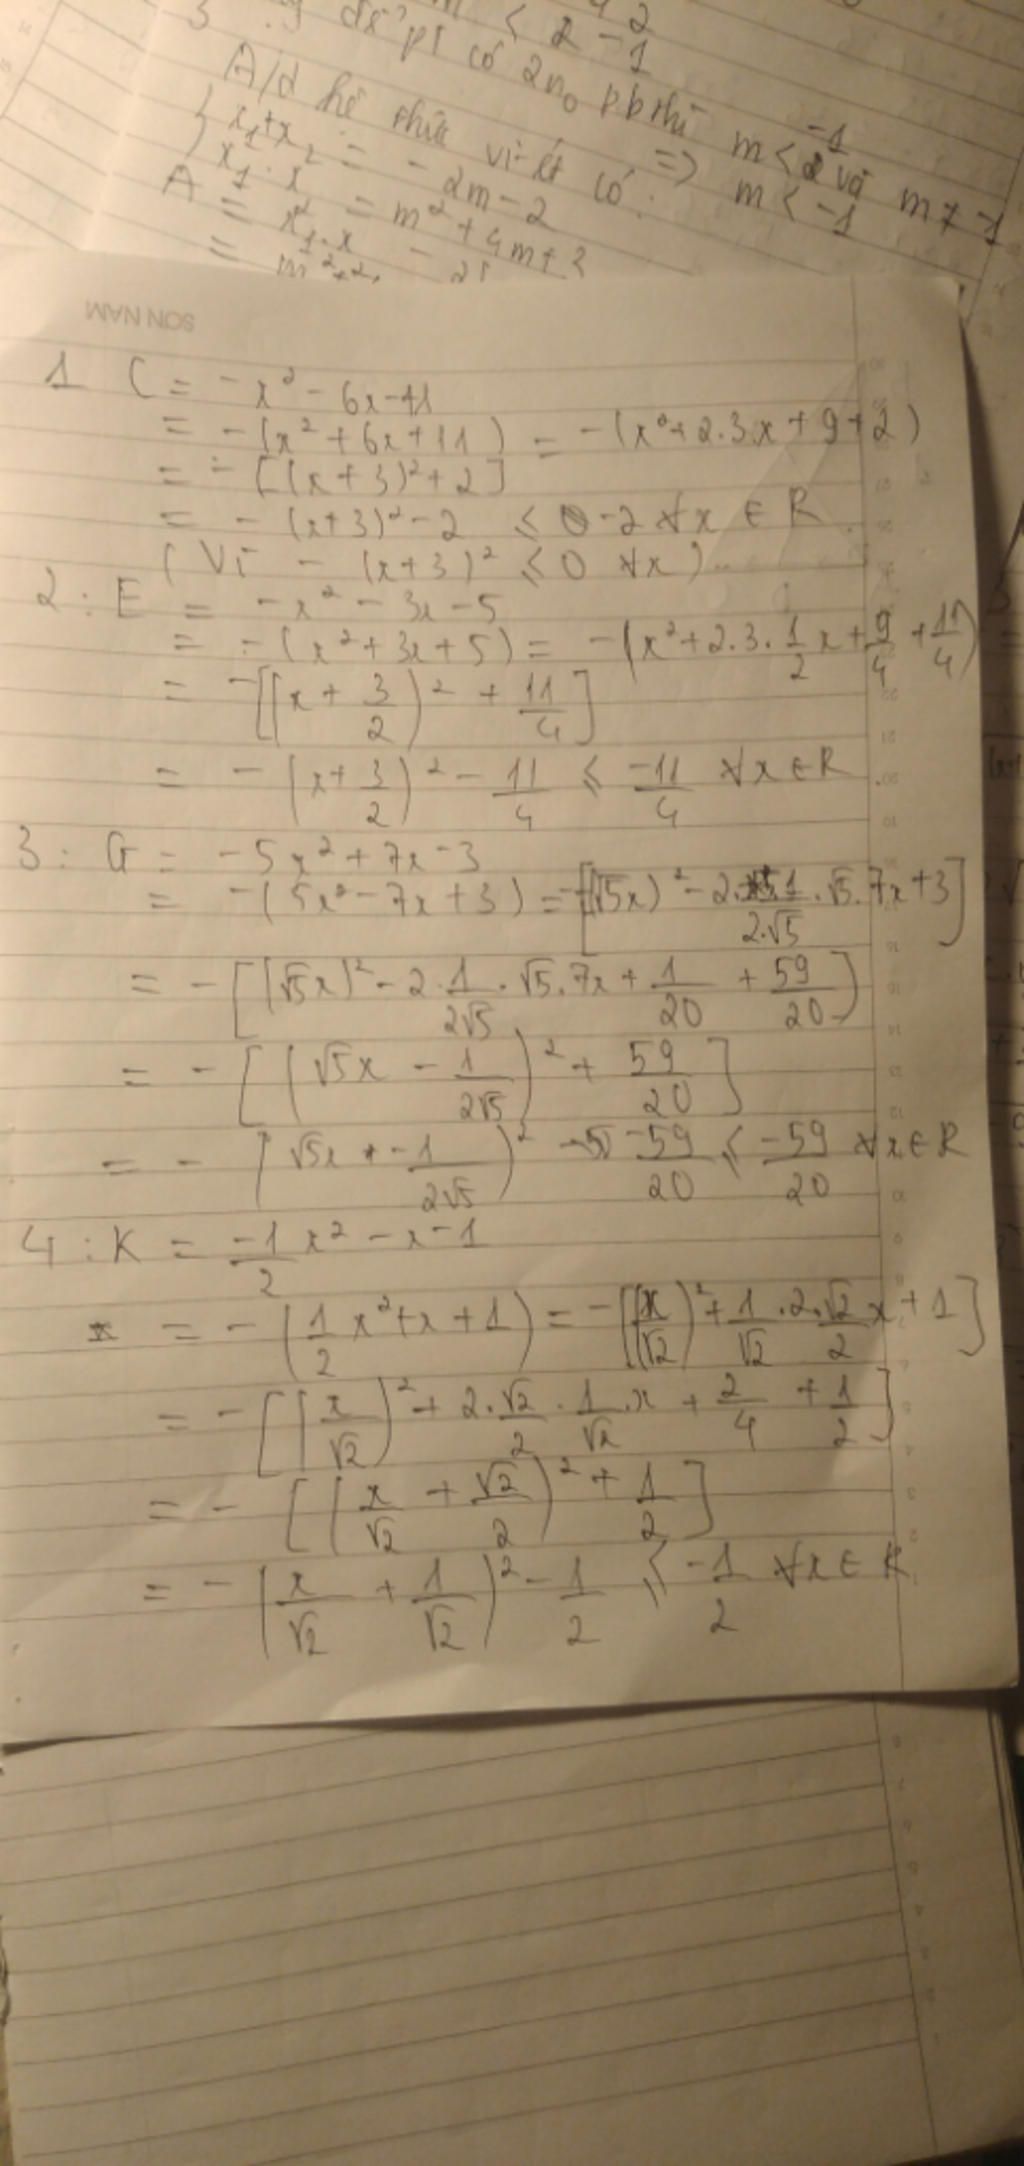 để pt có 2n₀ pb thì m < 2 và m ≠ -1
=> m < -1
A/d hệ thức vi-ét có:
x₁+x₂ = -2m-2
x₁.x₂ = m²+4m+3
SON NAM
1 C = -x² - 6x-11
= -(x²+6x+11) = -(x²+2.3.x+9+2)
= -[(x+3)²+2]
= -(x+3)²-2 ≤ -2 ∀x ∈ R
(Vì -(x+3)² ≤ 0 ∀x)
2: E = -x² - 3x-5
= -(x²+3x+5) = -(x²+2.3.1/2x+9/4+11/4)
= -[(x+3/2)²+11/4]
= -(x+3/2)² - 11/4 ≤ -11/4 ∀x∈R
3: G = -5x²+7x-3
= -(5x²-7x+3) = -[(√5x)²-2.1/2.√5.√5.7x+3]
= -[(√5x)²-2.1/2√5.√5.7x+1/20+59/20]
= -[(√5x - 1/2√5)²+59/20]
= -(√5x - 1/2√5)² -59/20 ≤ -59/20 ∀x∈R
4: K = -1/2x² - x-1
= -(1/2x²+x+1) = -[(x/√2)²+1/√2.2.√2/2x+1]
= -[(x/√2)²+2.√2/2.1/√2.x+2/4+1/2]
= -[(x/√2+√2/2)²+1/2]
= -(x/√2+1/√2)²-1/2 ≤ -1/2 ∀x∈R